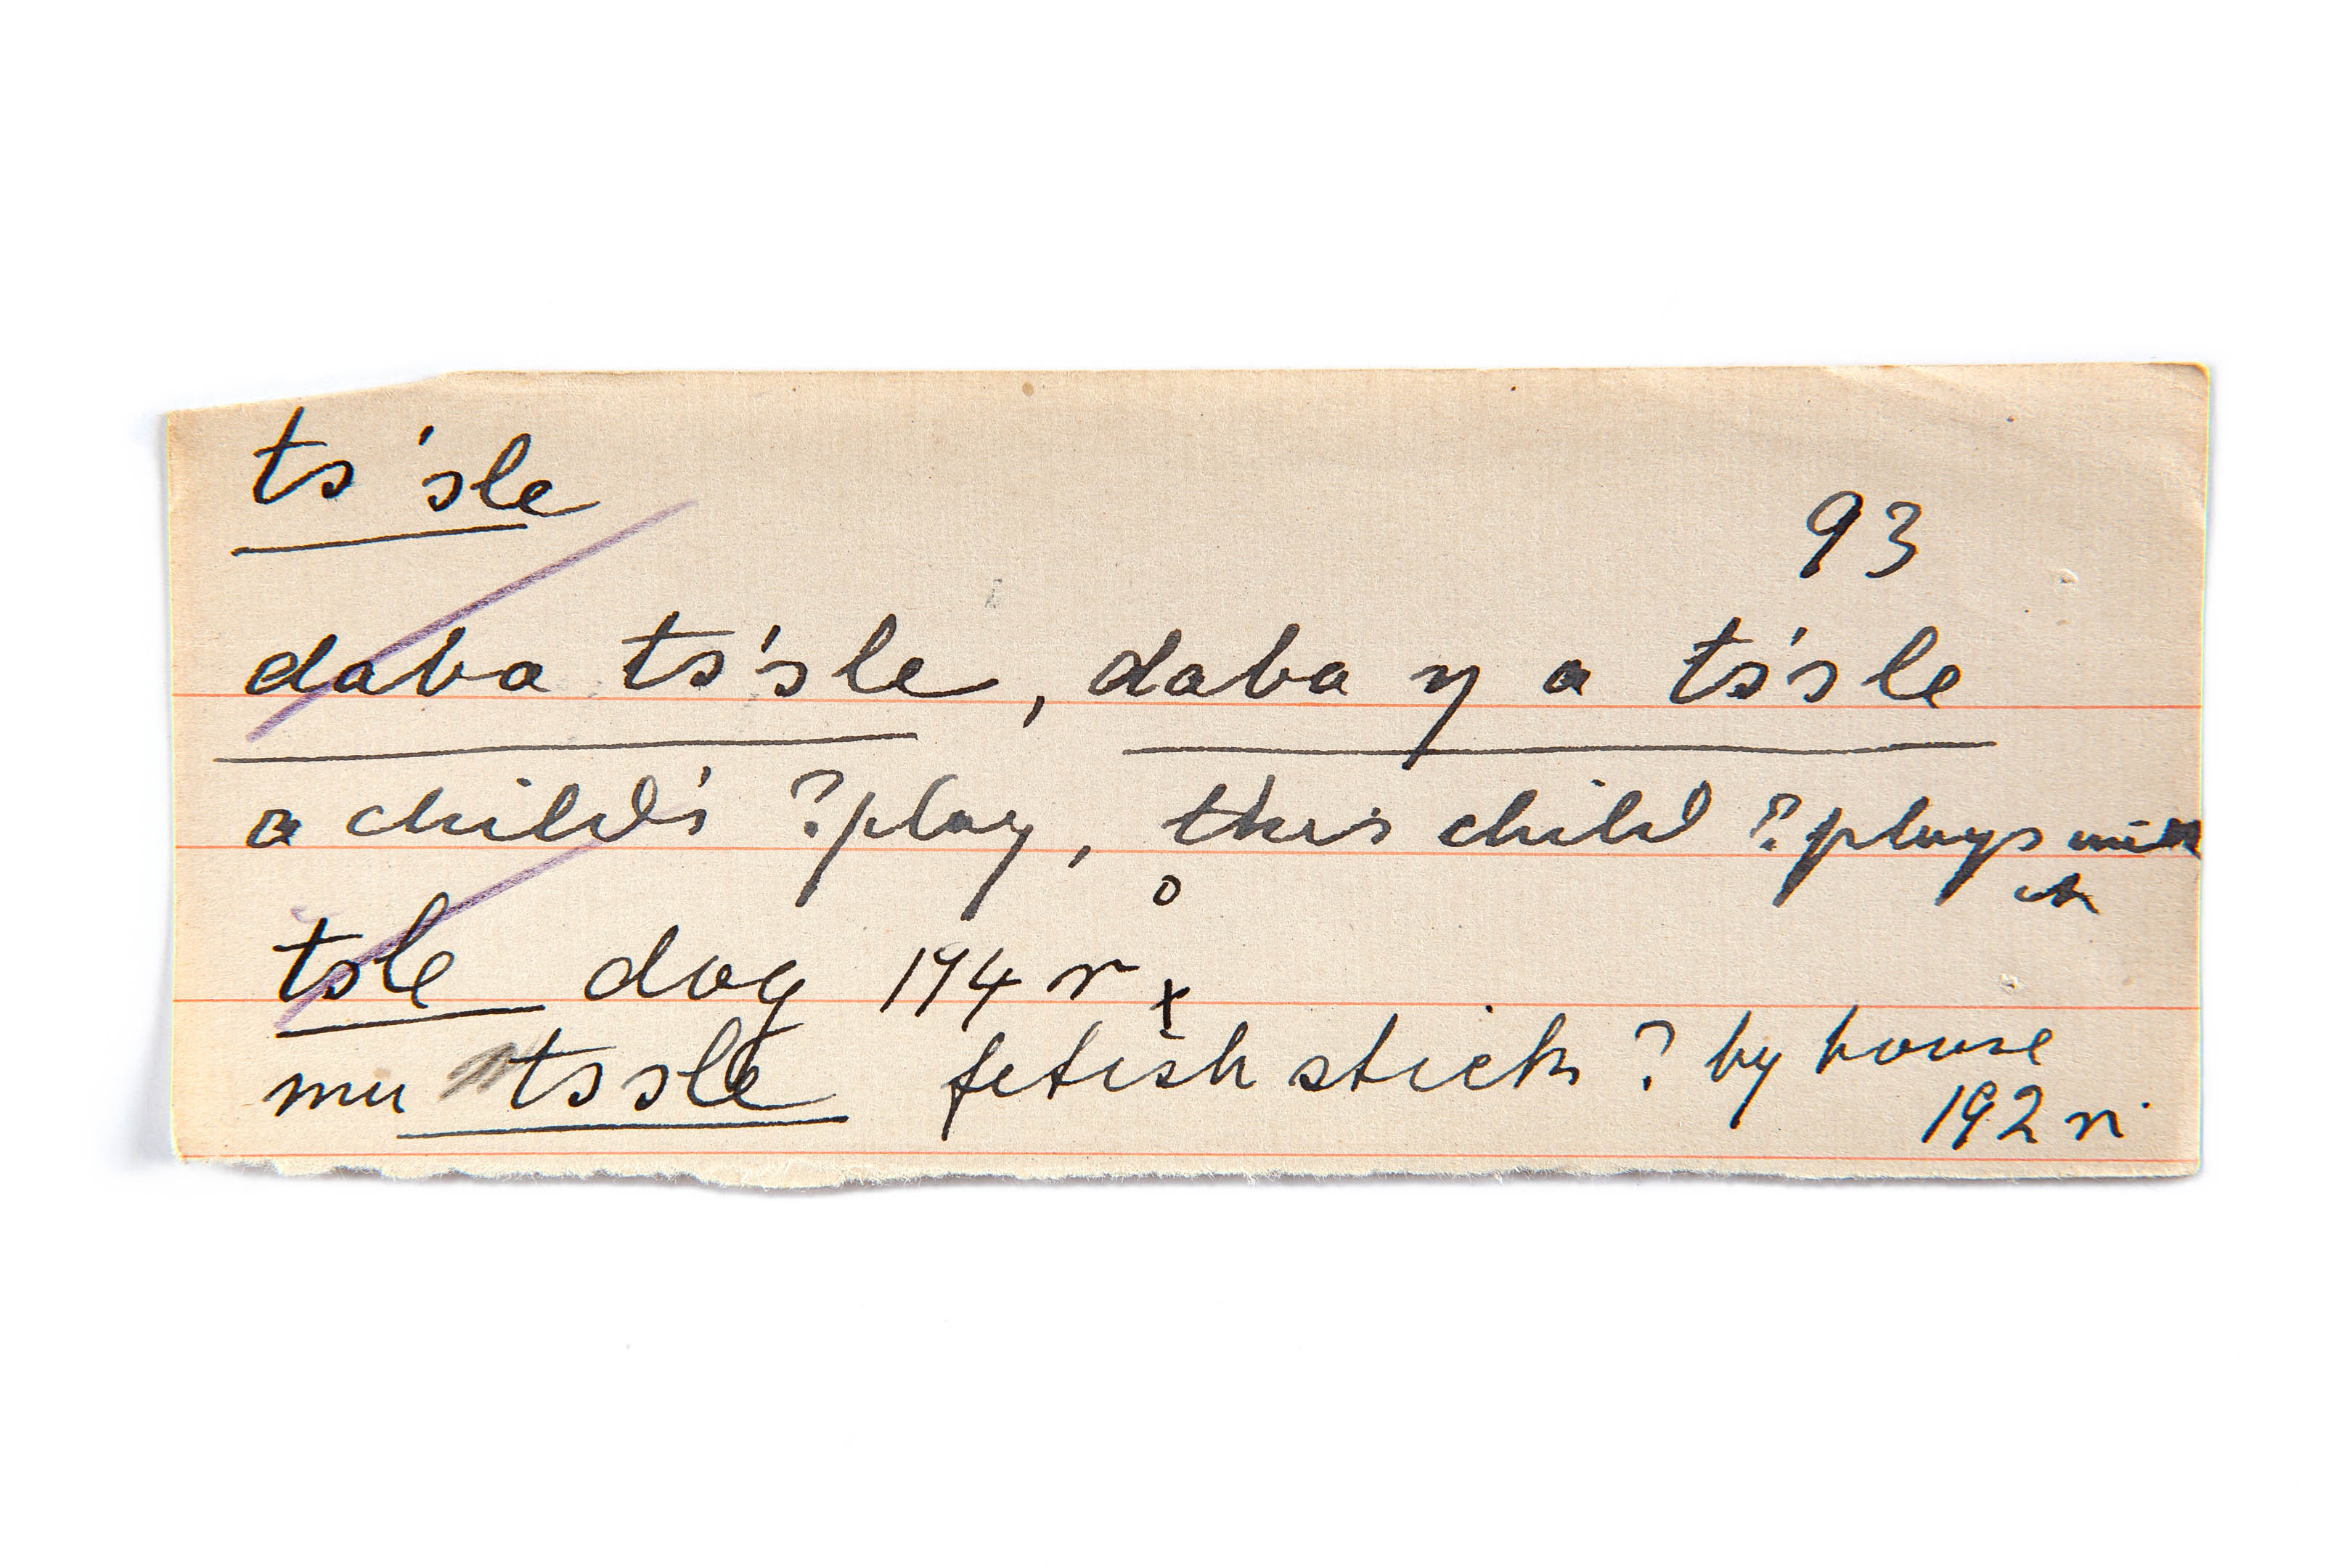 ts'sle
93
daba ts'sle, daba y a ts'sle
a child's ?play, this child ?plays with
it
tsle dog 194 r
mu tssle fetish stick ? by house
192 r